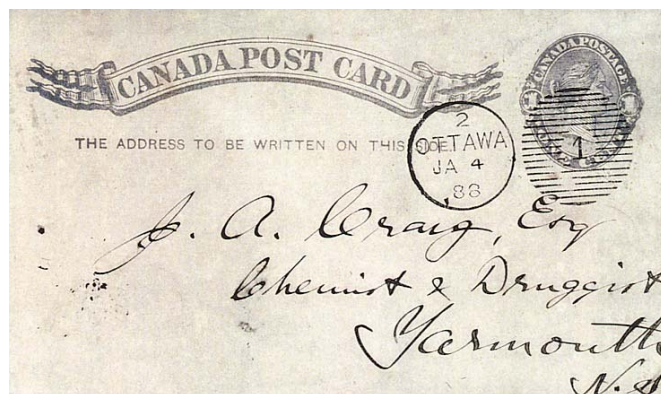 CANADA POST CARD
CANADA POSTAGE
THE ADDRESS TO BE WRITTEN ON THIS SIDE.
2
OTTAWA
JA 4
88
1
J. A. Craig, Esq
Chemist & Druggist
Yarmouth
N.S